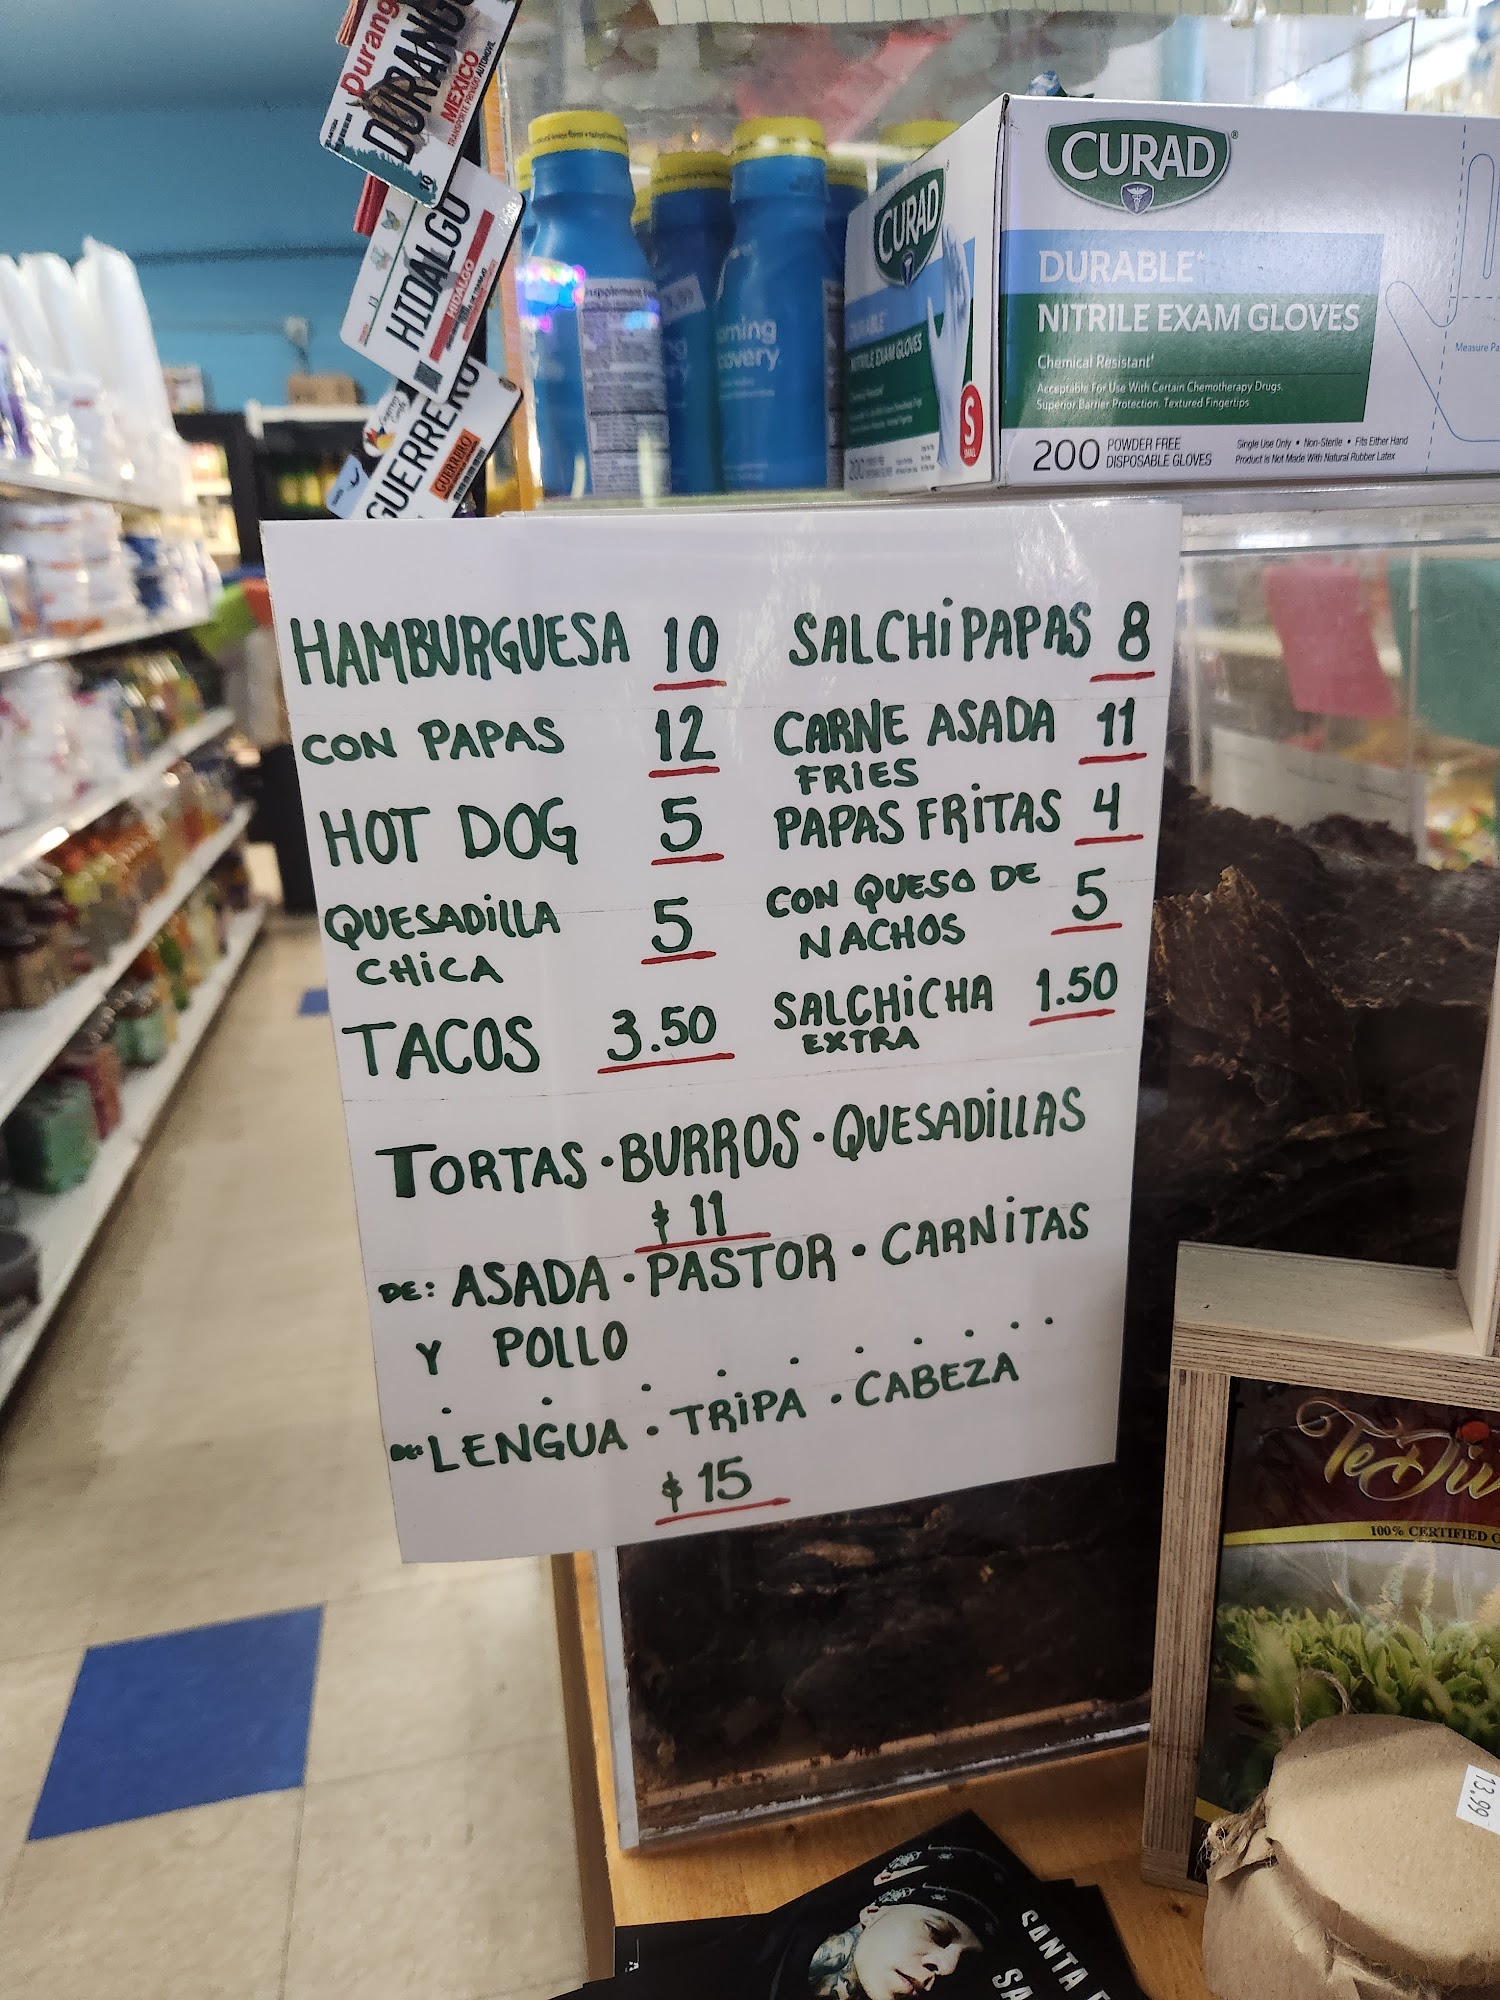 Durango
DURANGO
MEXICO
TRANSPORTE PRIVADO AUTOMOVIL
HIDALGO
HIDALGO
GUERRERO
GUERRERO
CURAD
DURABLE
NITRILE EXAM GLOVES
S
SMALL
CURAD®
DURABLE*
NITRILE EXAM GLOVES
Chemical Resistant†
Acceptable For Use With Certain Chemotherapy Drugs.
Superior Barrier Protection. Textured Fingertips
200 POWDER FREE
DISPOSABLE GLOVES
Single Use Only • Non-Sterile • Fits Either Hand
Product is Not Made With Natural Rubber Latex
Measure
HAMBURGUESA 10
CON PAPAS 12
HOT DOG 5
QUESADILLA 5
CHICA
TACOS 3.50
SALCHIPAPAS 8
CARNE ASADA 11
FRIES
PAPAS FRITAS 4
CON QUESO DE 5
NACHOS
SALCHICHA 1.50
EXTRA
TORTAS • BURROS • QUESADILLAS
$ 11
DE: ASADA • PASTOR • CARNITAS
Y POLLO
DE: LENGUA • TRIPA • CABEZA
$ 15
100% CERTIFIED
13.99
SANTA